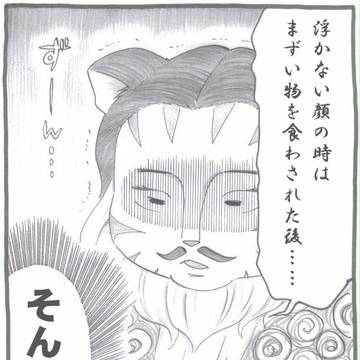 浮かない顔の時は
まずい物を食わされた後……
ずーん…
そん